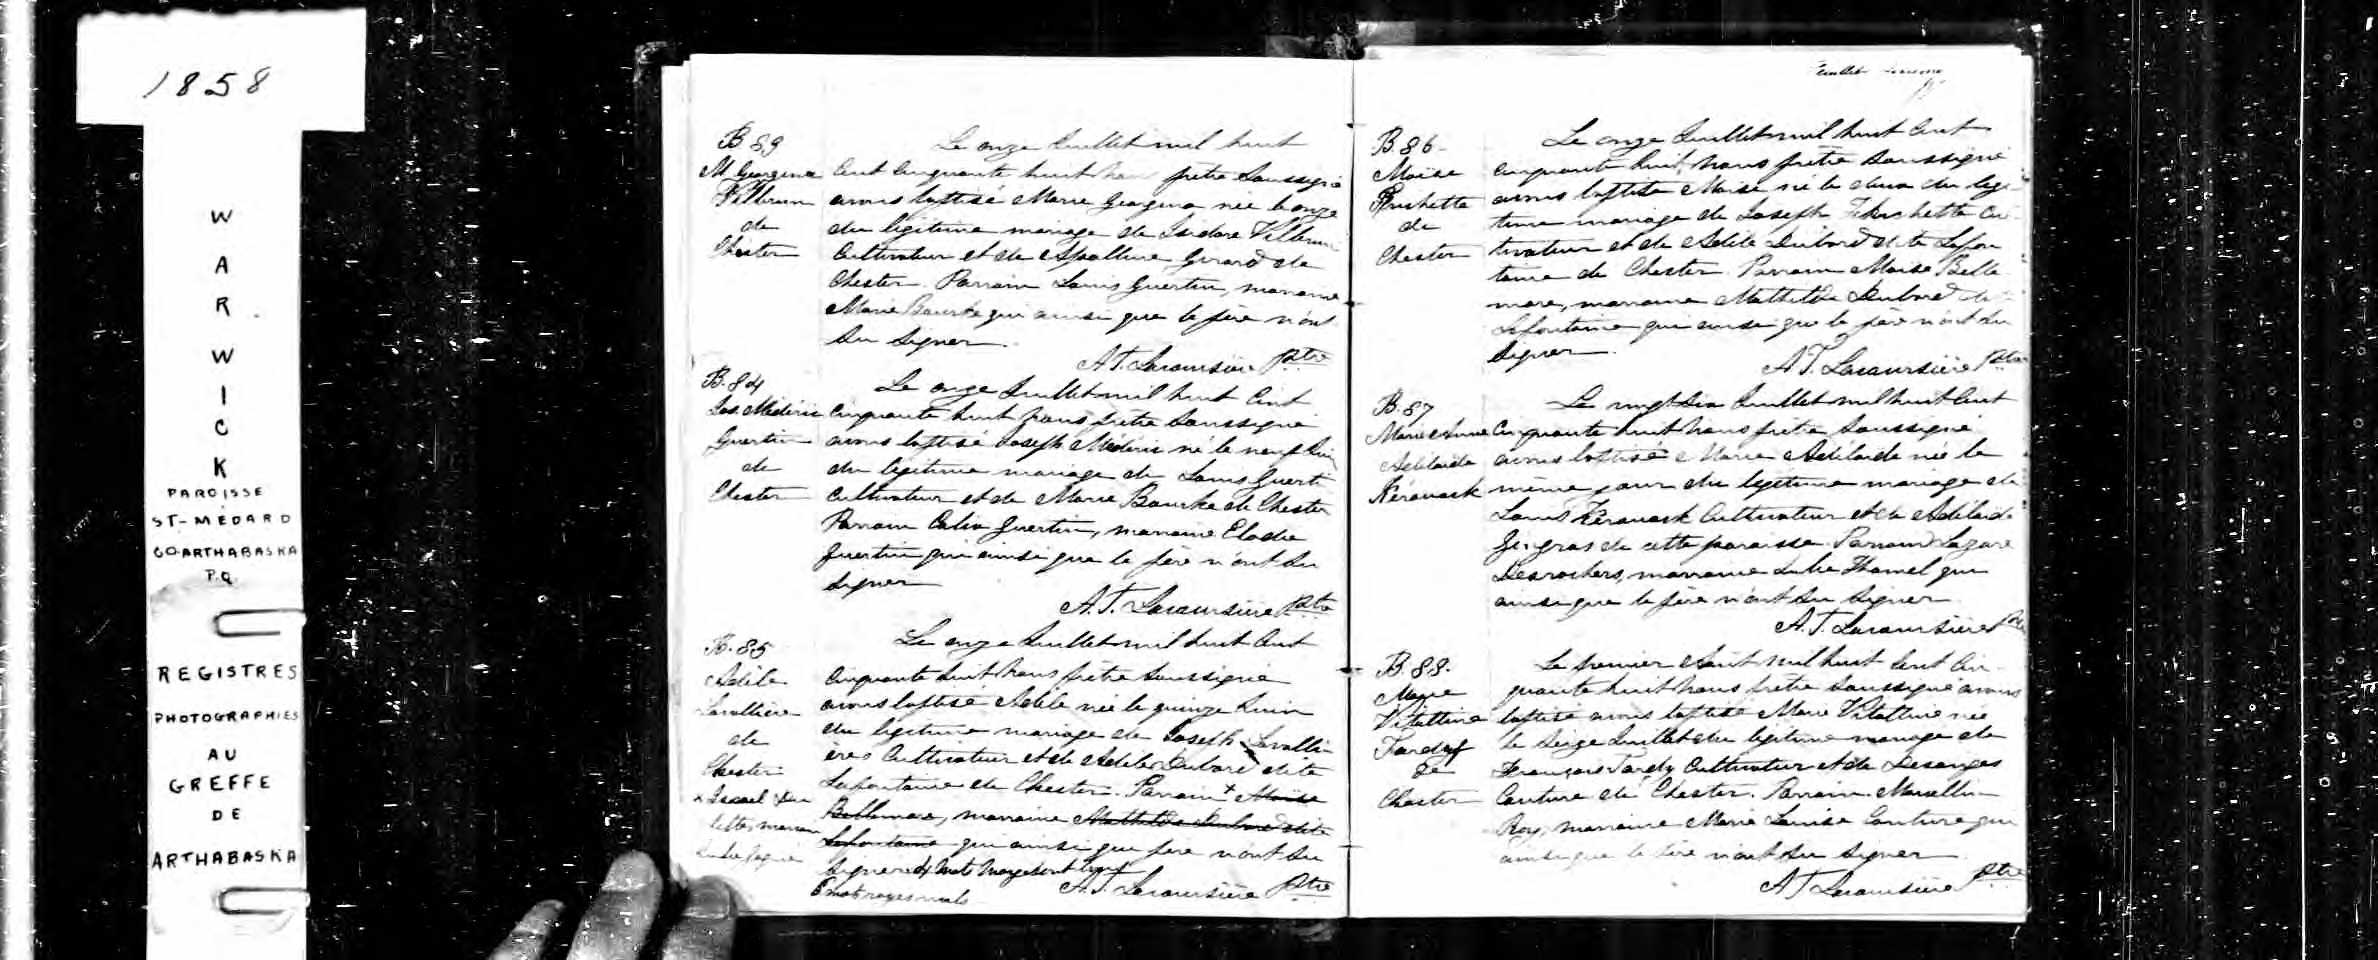 1858
W
A
R
W
I
C
K
PAROISSE
ST-MÉDARD
CO-ARTHABASKA
P.Q.
REGISTRES
PHOTOGRAPHIES
AU
GREFFE
DE
ARTHABASKA
B 89
M. Georgina
Vilbrun
de
Chester
Le onze Juillet mil huit
Cent Cinquante huit prêtre Soussigné
avons baptisé Marie Georgina née le onze
du légitime mariage de Isidore Villbrun
Cultivateur et de Girard de
Chester. Parrain Louis Guertin, marraine
Marie Bourke qui ainsi que le père n'ont
Su Signer.
A T. Lacoursière Ptre
B. 84
Jos. Médéric
Guertin
de
Chester
Le onze Juillet mil huit Cent
Cinquante huit Nous prêtre Soussigné
avons baptisé Joseph Médéric né le neuf Juin
du légitime mariage de Louis Guerti
Cultivateur et de Marie Bourke de Chester
Parrain Guertin, marraine Elodie
Guertin qui ainsi que le père n'ont Su
Signer
A. T. Lacoursière Ptre
B. 85
Adèle
Lavallière
de
Chester
x Israel
marrain
Le onze Juillet mil huit Cent
Cinquante huit Nous prêtre Soussigné
avons baptisé Adèle née le quinze Juin
du légitime mariage de Joseph Lavalli
ères Cultivateur et de Adèle Dubord dite
Lafontaine de Chester. Parrain x Moïse
Bellemare, marraine Mathilde Dubord dite
Lafontaine qui ainsi que père n'ont Su
Signer
6 mots rayés nuls
A. T. Lacoursière Ptre
Feuillet
B 86
Moïse
Fréchette
de
Chester
Le onze Juillet mil huit Cent
Cinquante huit, Nous prêtre Soussigné
avons baptisé Moïse né le deux du légi
time mariage de Joseph Fréchette Cul
tivateur et de Adèle Dubord dite Lafon
taine de Chester. Parrain Moïse Belle
mare, marraine Mathilde Dubord dite
Lafontaine qui ainsi que le père n'ont Su
Signer
A T. Lacoursière Ptre
B. 87
Marie Anne
Adélaïde
Kérouack
Le vingt Six Juillet mil huit Cent
Cinquante huit Nous prêtre Soussigné
avons baptisé Marie Adélaïde née le
même jour du légitime mariage de
Louis Kérouack Cultivateur et de Adélaïde
Gingras de cette paroisse. Parrain Lazare
Desrochers, marraine Julie Hamel qui
ainsi que le père n'ont Su Signer
A. T. Lacoursière Ptre
B. 88.
Marie
Vitalline
Tardif
de
Chester
Le premier Août mil huit Cent Cin
quante huit Nous prêtre Soussigné avons
baptisé avons baptisé Marie Vitalline née
le Seize Juillet du légitime mariage de
François Tardif Cultivateur et de Desanges
Couture de Chester. Parrain Marcellin
Roy, marraine Marie Louise Couture qui
ainsi que le père n'ont Su Signer
A T Lacoursière Ptre